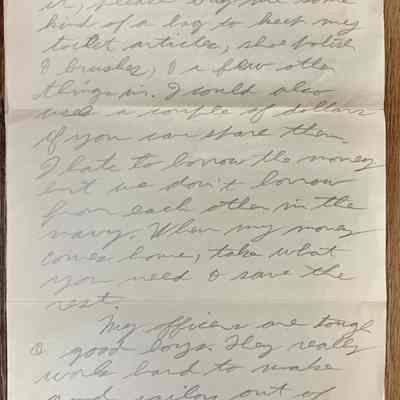 it, please buy me some
kind of a bag to keep my
toilet articles, shoe polish
& brushes, & a few other
things in. I could also
use a couple of dollars
if you can spare them.
I hate to borrow the money
but we don't borrow
from each other in the
navy. When my money
comes home, take what
you need & save the
rest.
My officers are tough
& good boys. They really
work hard to make
good sailors out of